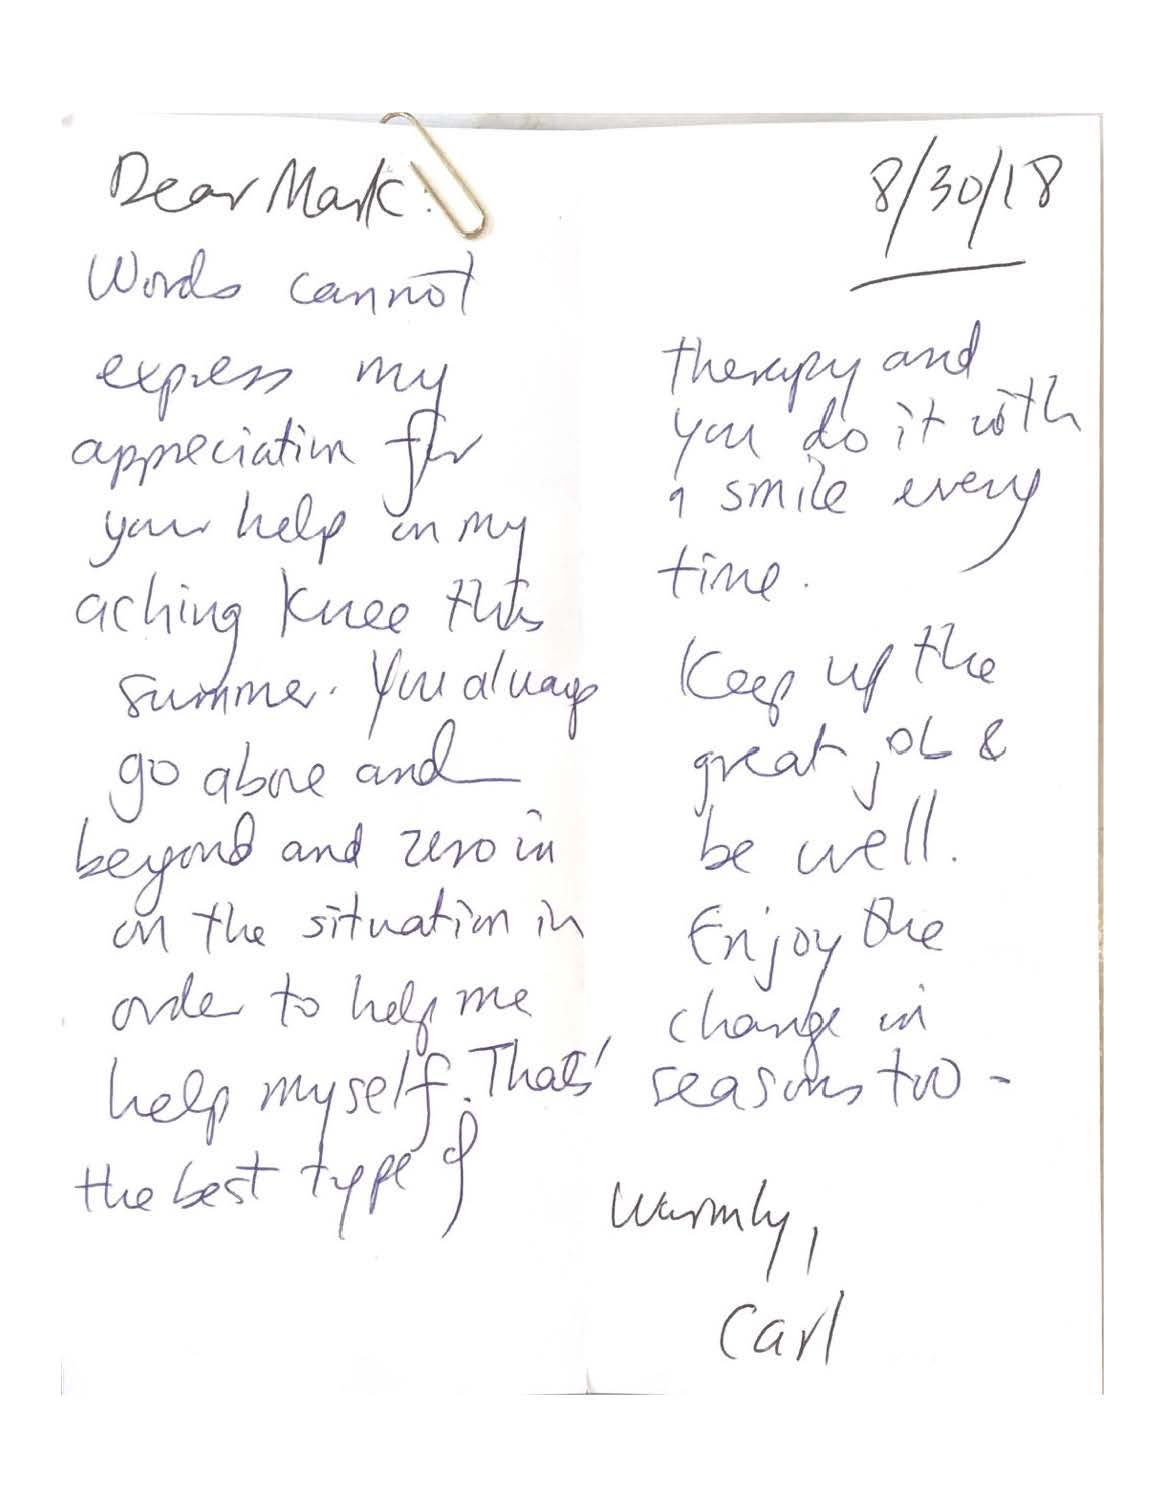 Dear Mark:
Words cannot
express my
appreciation for
your help on my
aching knee this
summer. You always
go above and
beyond and zero in
on the situation in
order to help me
help myself. Thats'
the best type of
8/30/18
therapy and
you do it with
a smile every
time.
Keep up the
great job &
be well.
Enjoy the
change in
seasons too -
Warmly,
Carl